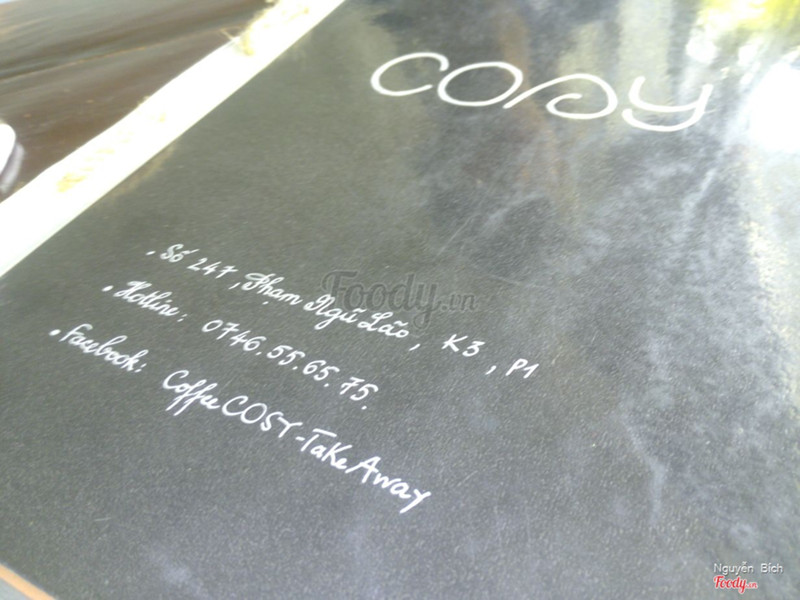 COSY
. Số 247, Phạm Ngũ Lão, K3, P1
. Hotline: 0746.55.65.75.
. Facebook: Coffee COSY-Take Away
Foody.vn
Nguyễn Bích
Foody.vn